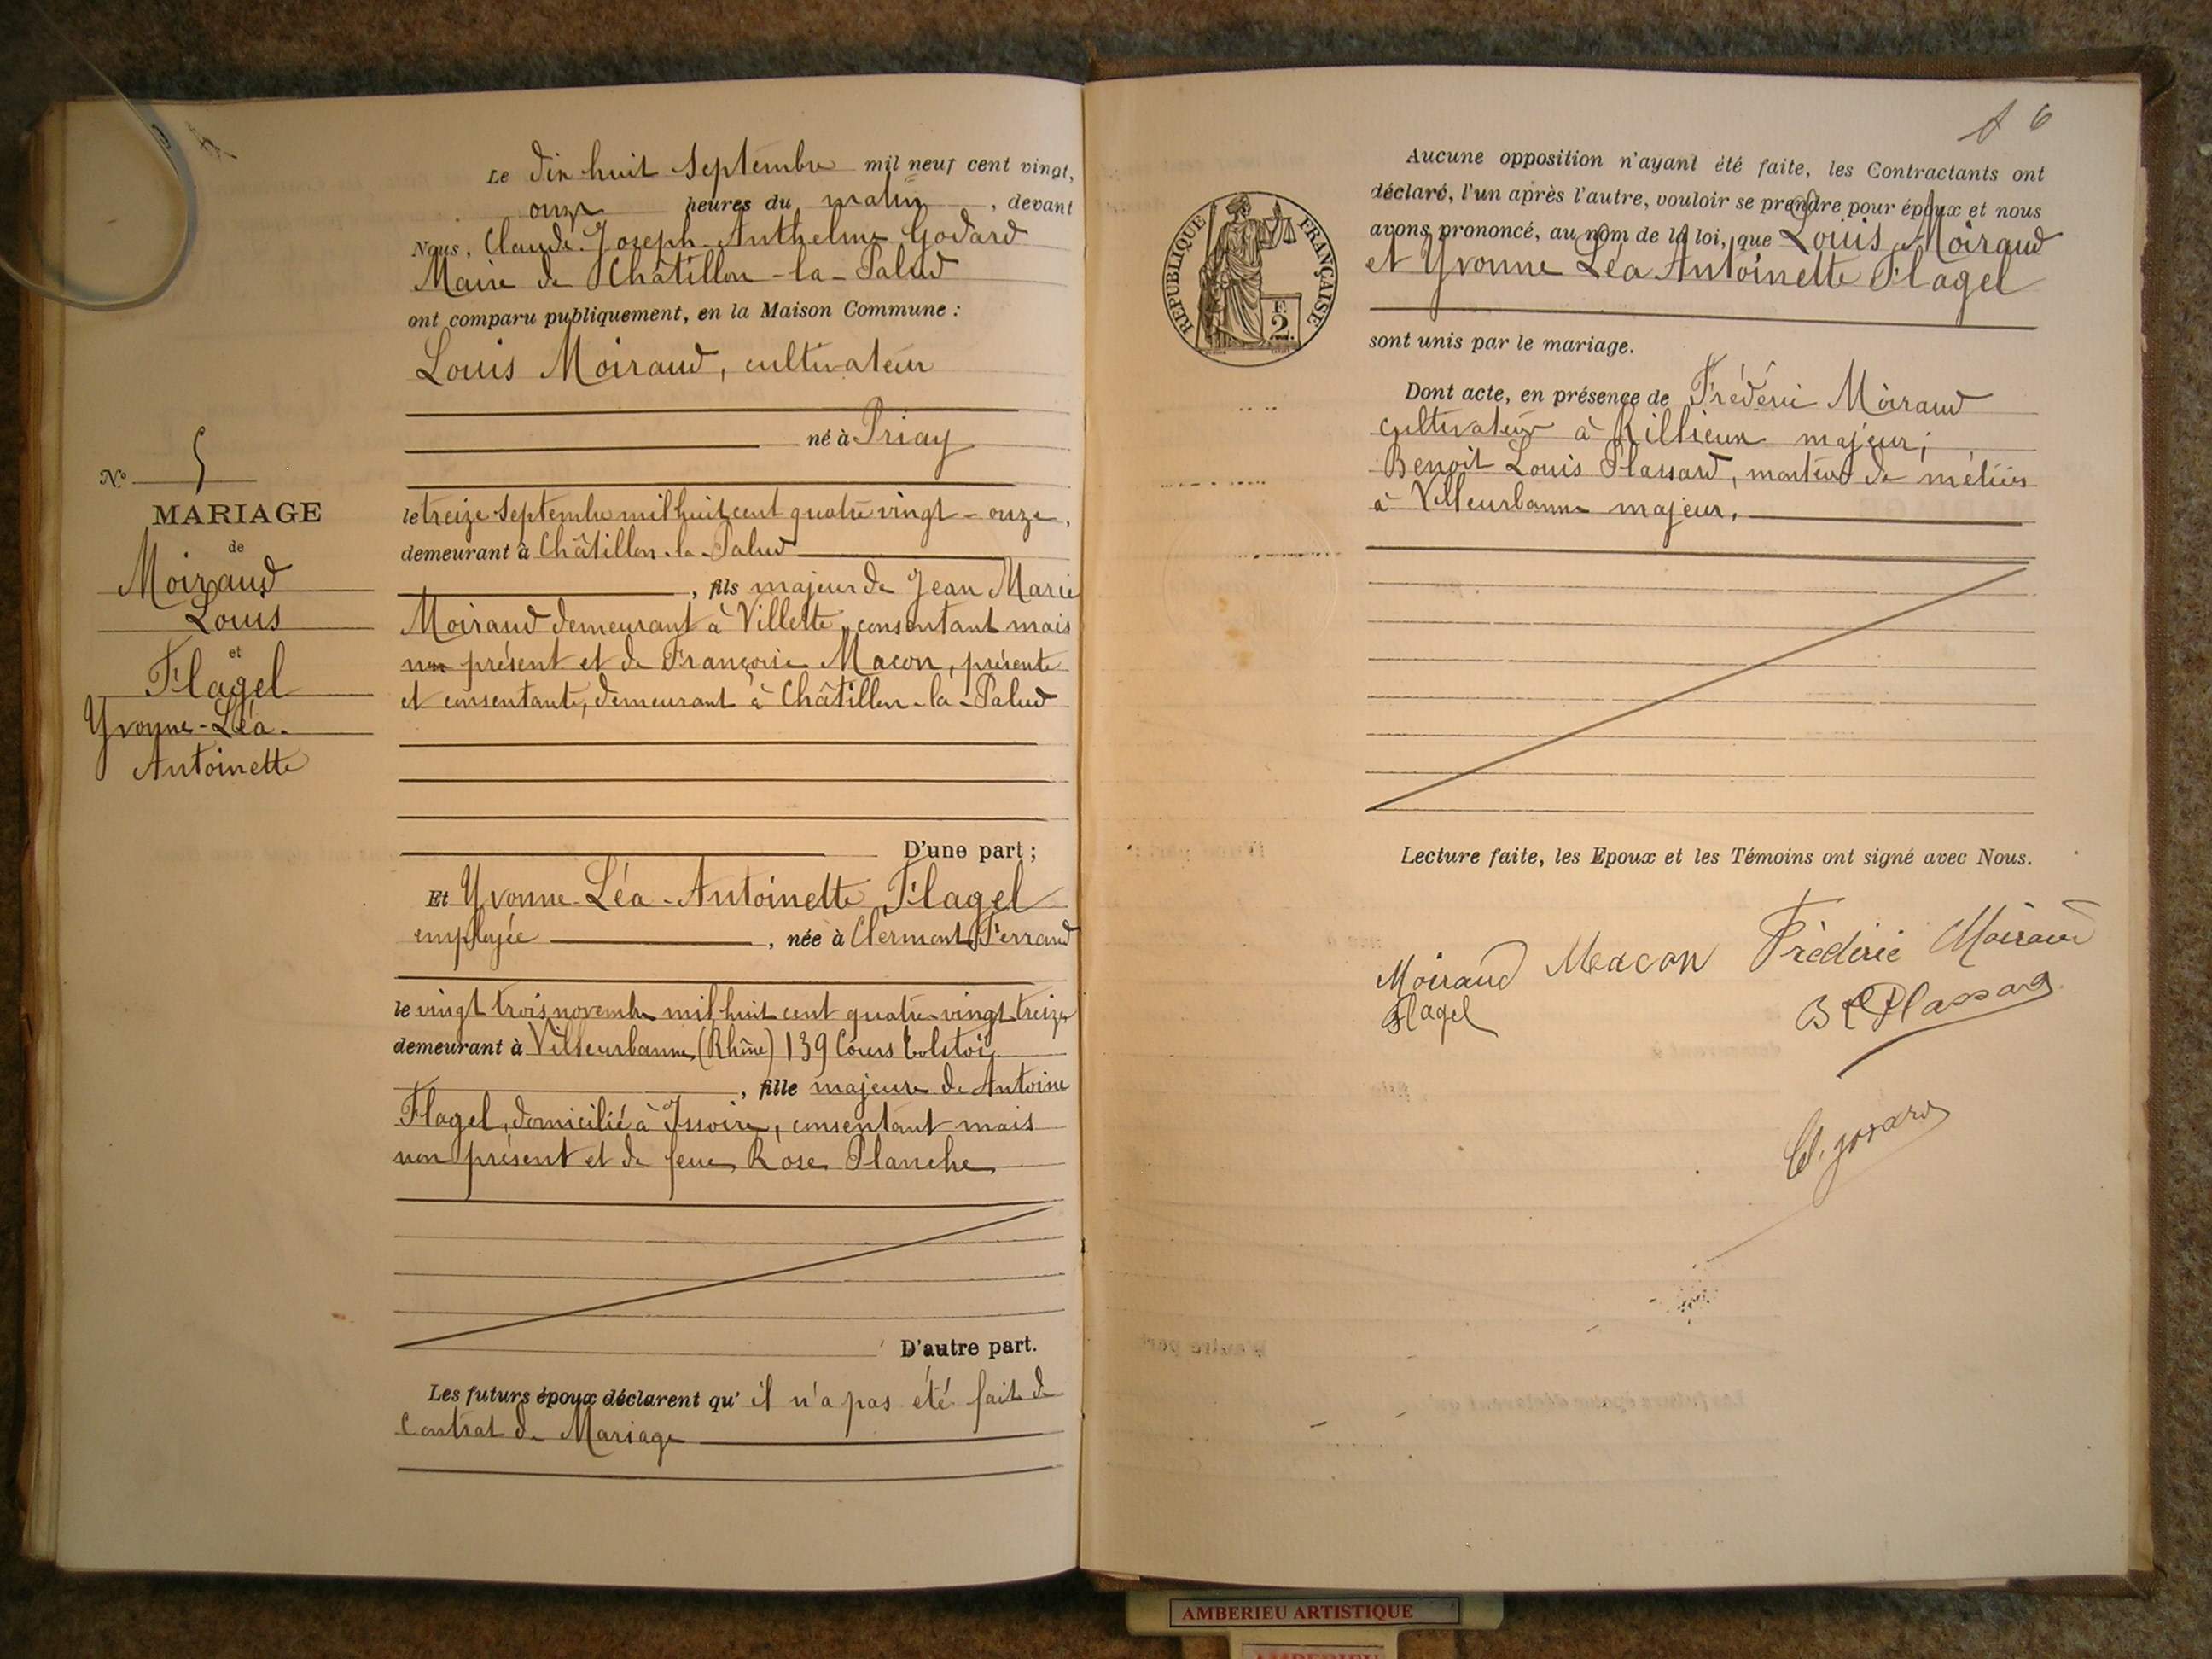 Le dix huit Septembre mil neuf cent vingt,
onze heures du matin, devant
Nous, Claude Joseph Anthelme Godard
Maire de Châtillon-la-Palud
ont comparu publiquement, en la Maison Commune :
Louis Moiraud, cultivateur
né à Priay
le treize Septembre mil huit cent quatre vingt-onze,
demeurant à Châtillon-la-Palud
, fils majeur de Jean Marie
Moiraud demeurant à Villette, consentant mais
non présent et de Françoise Macon, présente
et consentante, demeurant à Châtillon-la-Palud
D'une part ;
Et Yvonne-Léa-Antoinette Flagel
employée, née à Clermont-Ferrand
le vingt trois novembre mil huit cent quatre-vingt treize
demeurant à Villeurbanne (Rhône) 139 Cours Tolstoï
, fille majeure de Antoine
Flagel, domicilié à Issoire, consentant mais
non présent et de feue Rose Planche
D'autre part.
Les futurs époux déclarent qu'il n'a pas été fait de
Contrat de Mariage
N° 5
MARIAGE
de
Moiraud
Louis
et
Flagel
Yvonne-Léa-
Antoinette
6
Aucune opposition n'ayant été faite, les Contractants ont
déclaré, l'un après l'autre, vouloir se prendre pour époux et nous
avons prononcé, au nom de la loi, que Louis Moiraud
et Yvonne Léa Antoinette Flagel
sont unis par le mariage.
RÉPUBLIQUE FRANÇAISE
F.
2.
Dont acte, en présence de Frédéric Moiraud
cultivateur à Rillieux majeur;
Benoit Louis Plassard, monteur de métiers
à Villeurbanne majeur.
Lecture faite, les Epoux et les Témoins ont signé avec Nous.
Moiraud Macon Frédéric Moiraud
Flagel B L Plassard
Cl. Godard
AMBERIEU ARTISTIQUE
AMBERIEU